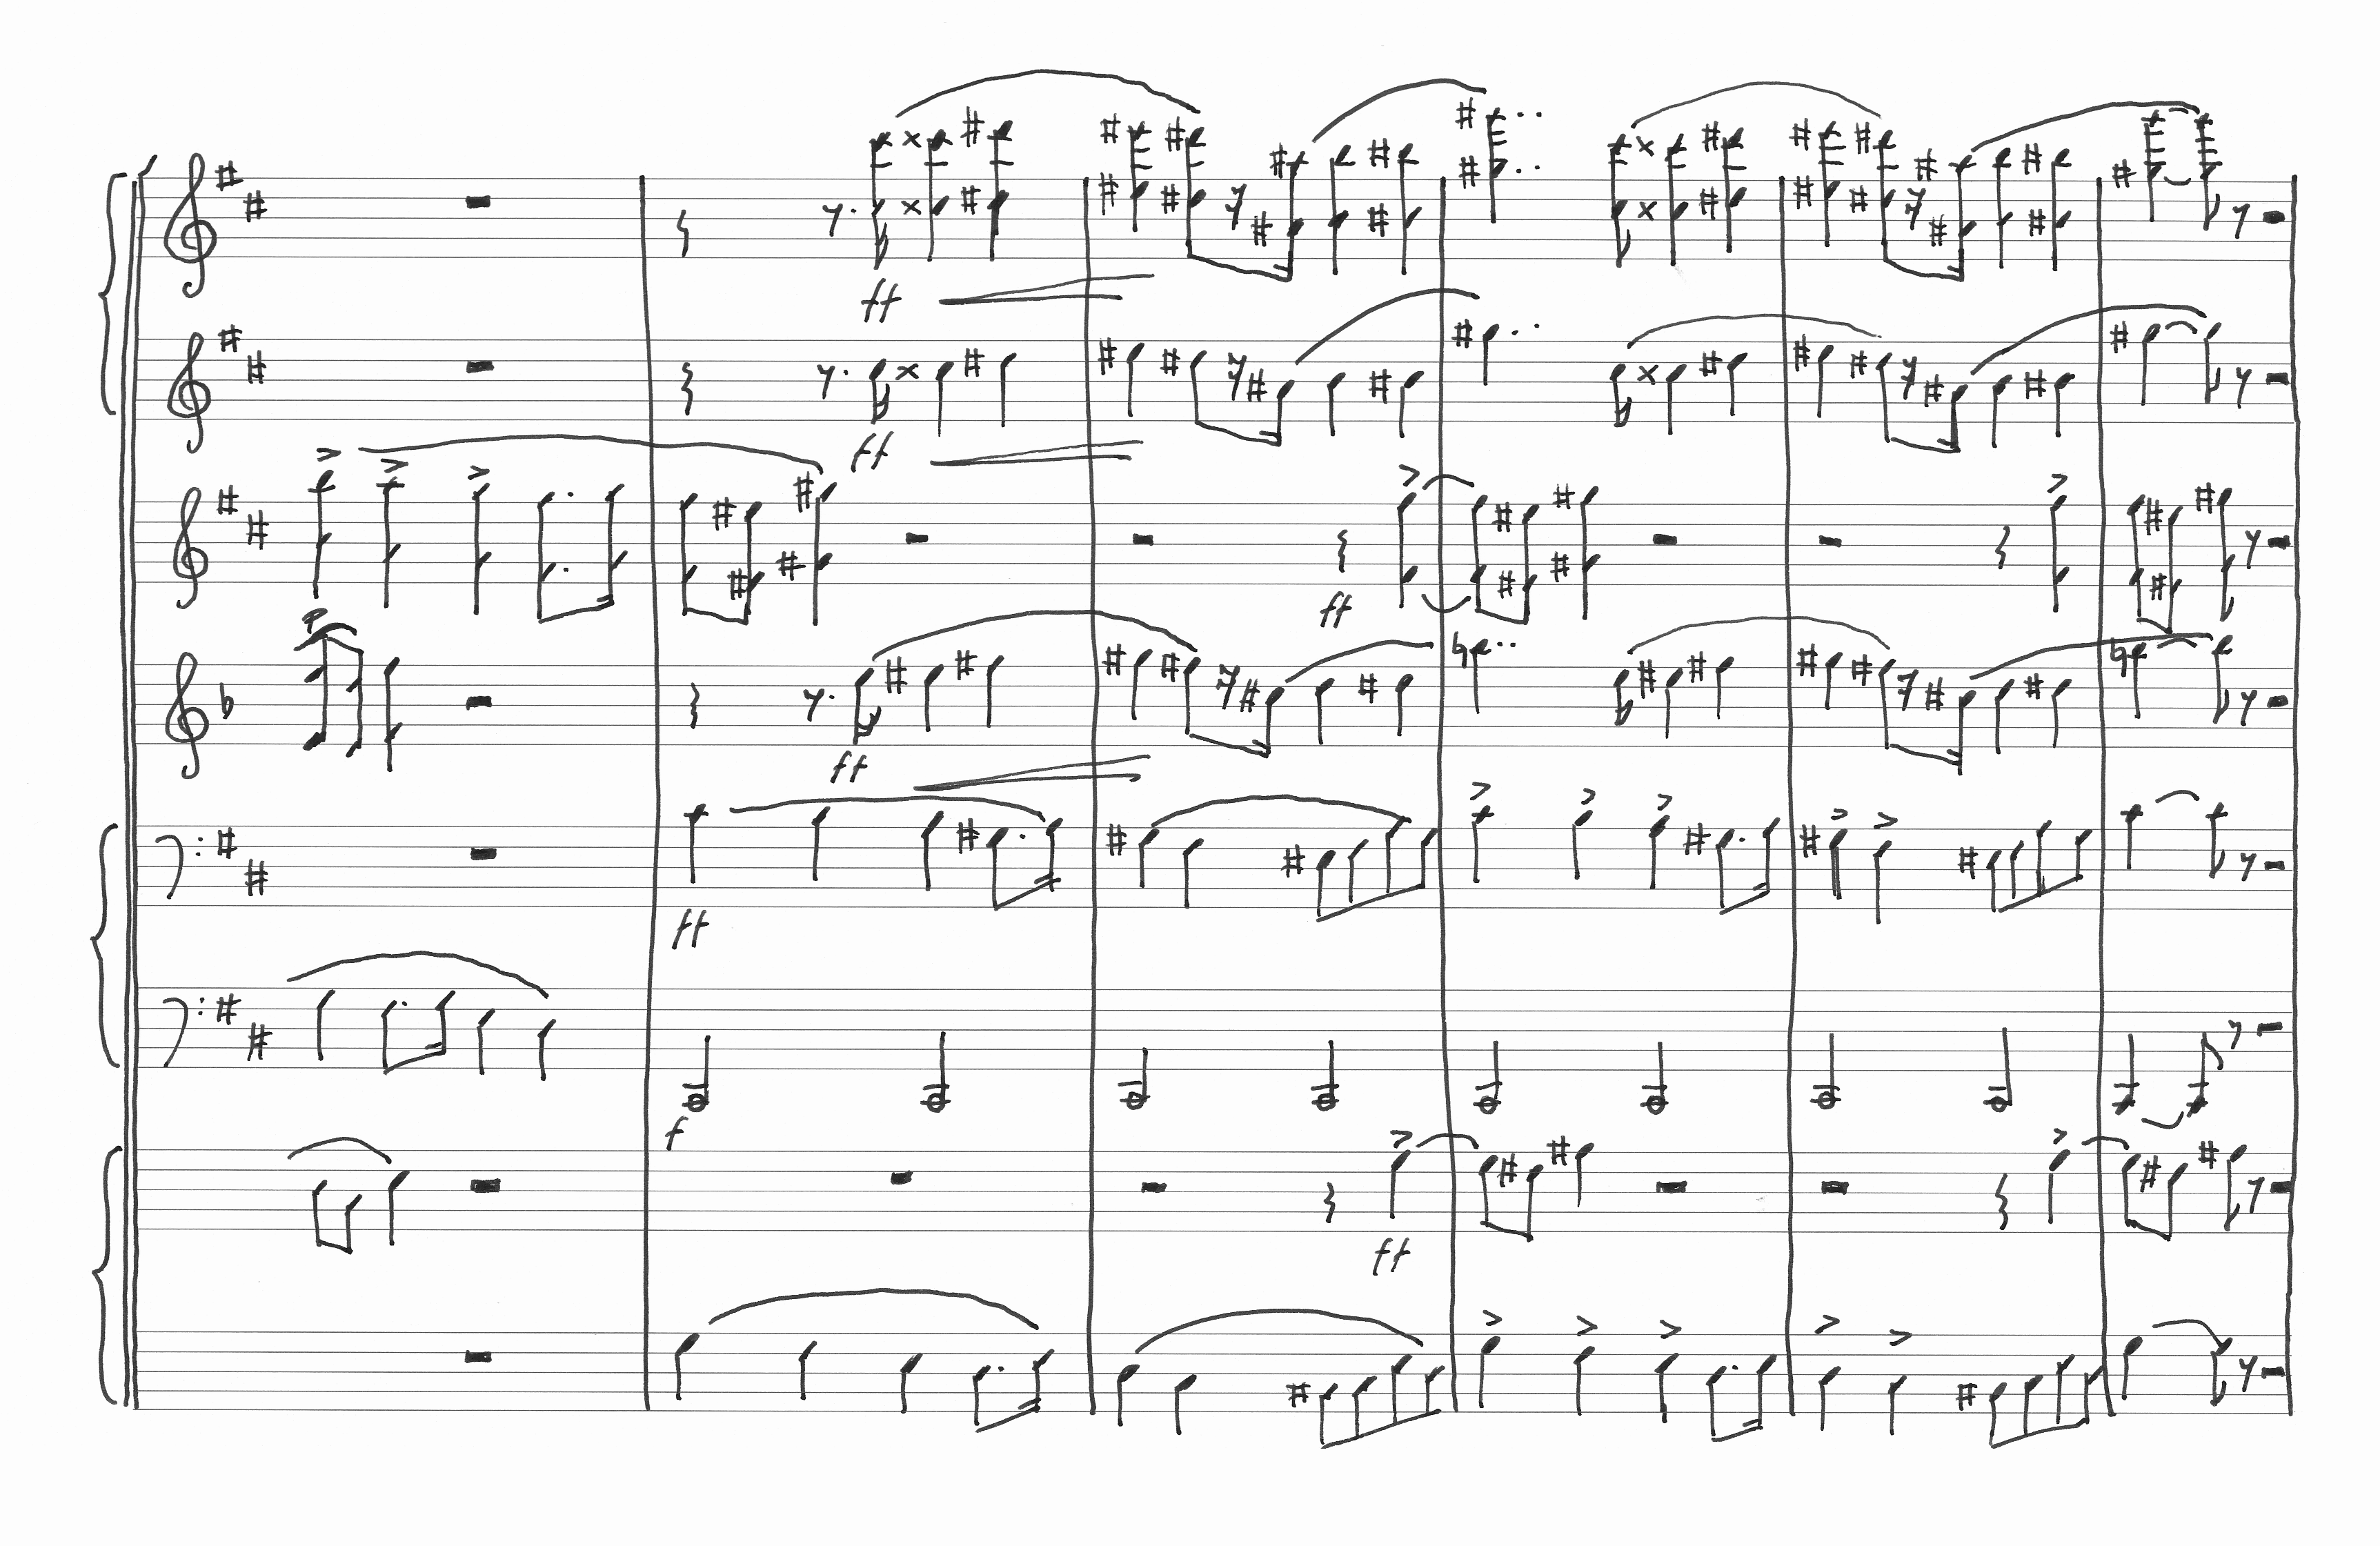 ff
ff
ff
p
ff
ff
f
ff